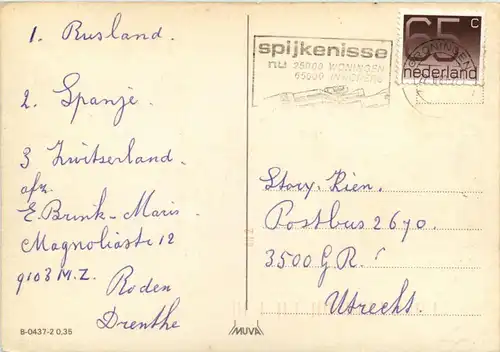 1. Rusland.
2. Spanje.
3 Zwitserland.
afz.
E. Brink-Maris
Magnoliastr 12
9103 M.Z. Roden
Drenthe
B-0437-2 0,35
MUVA
spijkenisse
nu 25000 WONINGEN
65000 INWONERS
65 c
nederland
GRONINGEN
Story-Rien.
Postbus 2670.
3500 G R.
Utrecht.